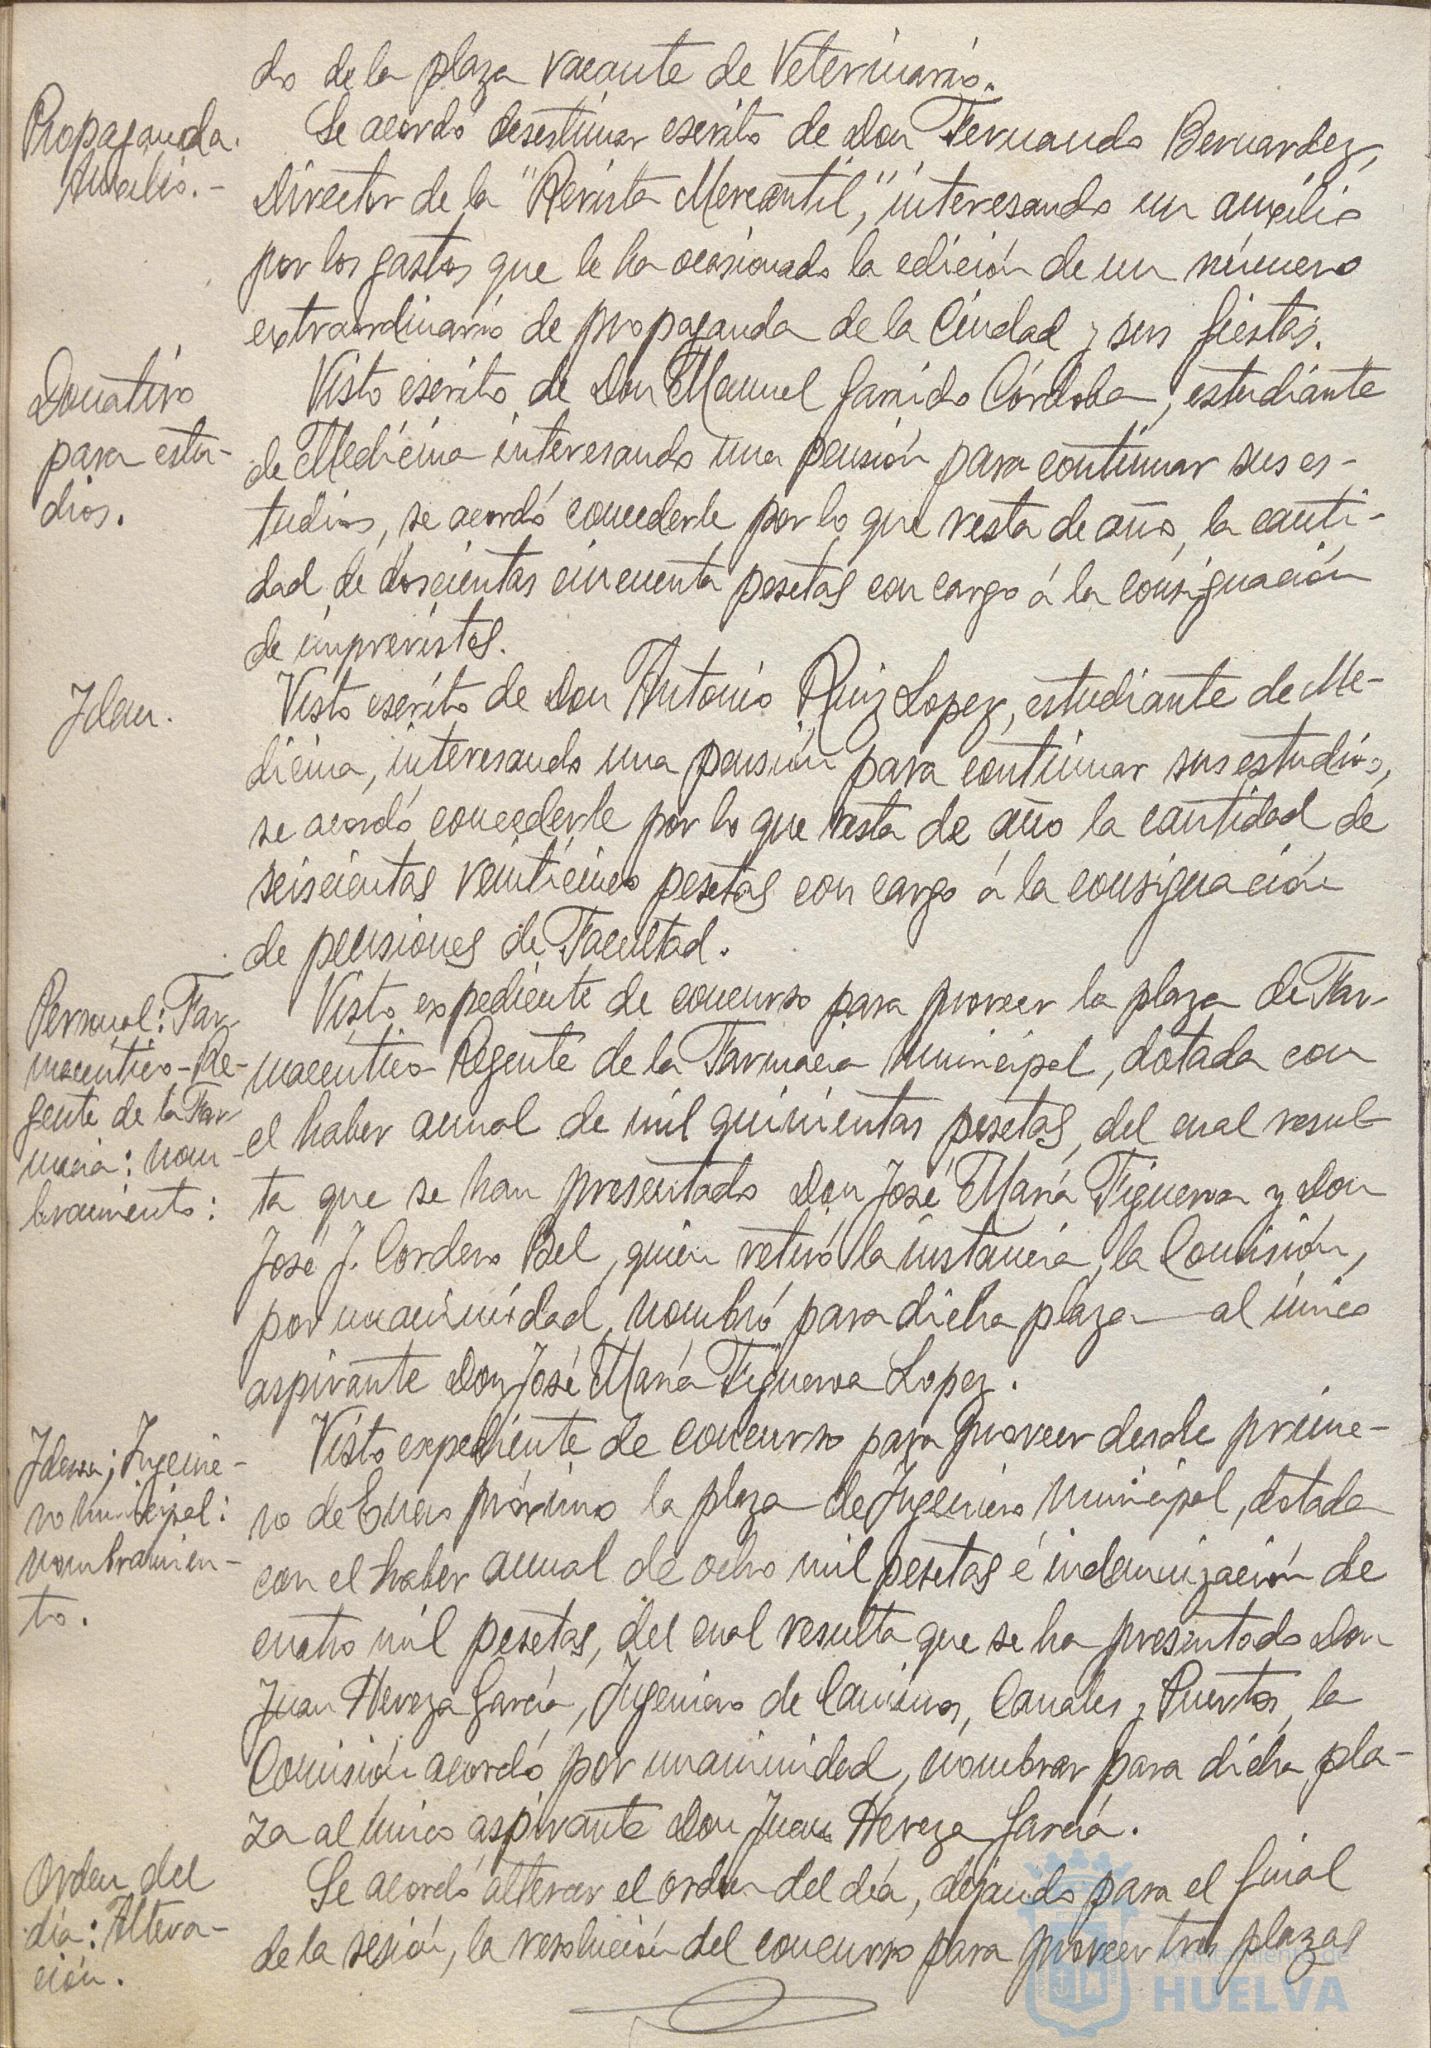 do de la plaza vacante de Veterinario.
Propaganda.
Auxilio.-
Se acordó desestimar escrito de Don Fernando Bernardez,
Director de la "Revista Mercantil," interesando un auxilio
por los gastos que le ha ocasionado la edición de un número
extraordinario de propaganda de la Ciudad y sus fiestas.
Donativo
para estu-
dios.
Visto escrito de Don Manuel Garrido Córdoba, estudiante
de Medicina interesando una pensión para continuar sus es-
tudios, se acordó concederle por lo que resta de año, la canti-
dad de doscientas cincuenta pesetas con cargo á la consignación
de imprevistos.
Idem.
Visto escrito de Don Antonio Ruiz Lopez, estudiante de Me-
dicina, interesando una pensión para continuar sus estudios,
se acordó concederle por lo que resta de año la cantidad de
seiscientas veinticinco pesetas con cargo á la consignación
de pensiones de Facultad.
Personal: Far-
macéutico-Re-
gente de la Far-
macia: nom-
bramiento:
Visto expediente de concurso para proveer la plaza de Far-
macéutico Regente de la Farmacia municipal, dotada con
el haber anual de mil quinientas pesetas, del cual resul-
ta que se han presentado Don José María Figueroa y Don
José J. Cordero Bel, quien retiró la instancia, la Comisión,
por unanimidad, nombró para dicha plaza al único
aspirante Don José María Figueroa Lopez.
Idem; Ingenie-
ro municipal:
nombramien-
to.
Visto expediente de concurso para proveer desde prime-
ro de Enero próximo la plaza de Ingeniero municipal, dotada
con el haber anual de ocho mil pesetas é indemnización de
cuatro mil pesetas, del cual resulta que se ha presentado Don
Juan Hereza García, Ingeniero de Caminos, Canales y Puertos, la
Comisión acordó, por unanimidad, nombrar para dicha pla-
za al único aspirante Don Juan Hereza García.
Orden del
día: Altera-
ción.
Se acordó alterar el orden del día, dejando para el final
de la sesión, la resolución del concurso para proveer tres plazas
Ayuntamiento de
HUELVA